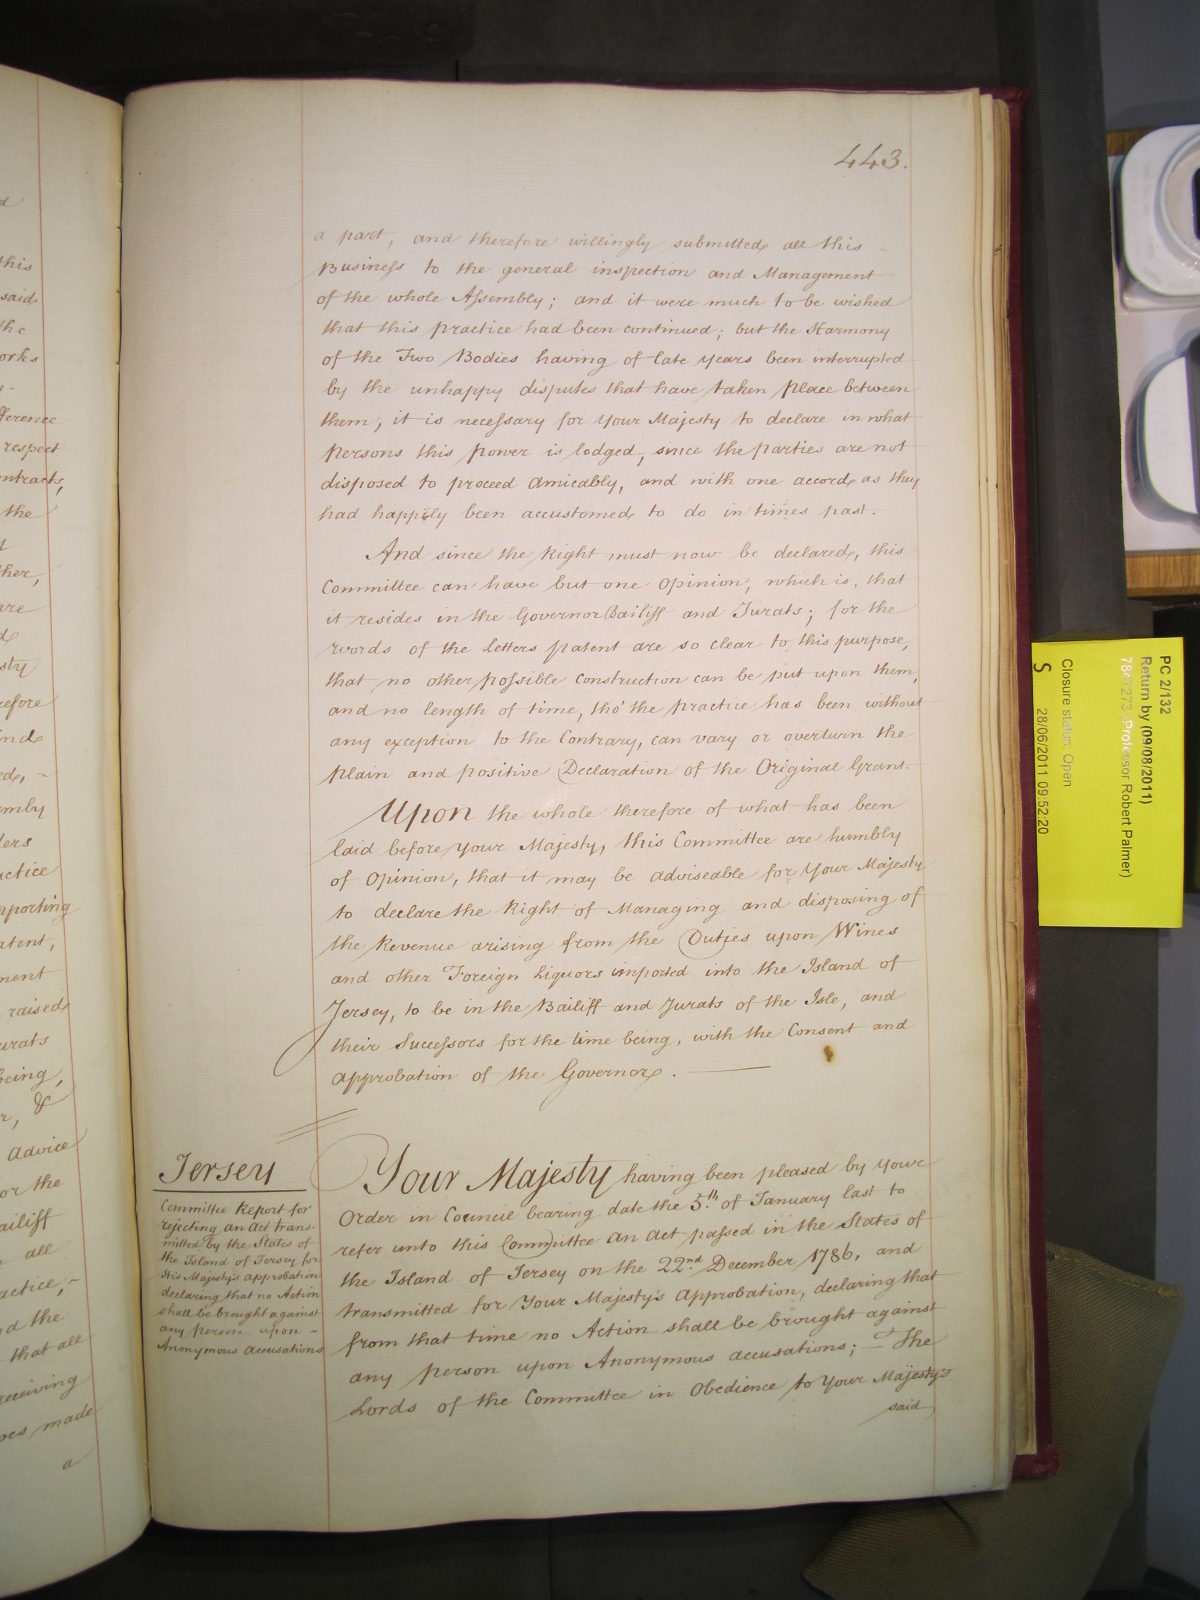 443.
a part, and therefore willingly submitted all this
Business to the general inspection and Management
of the whole Assembly; and it were much to be wished
that this practice had been continued; but the Harmony
of the Two Bodies having of late years been interrupted
by the unhappy disputes that have taken place between
them, it is necessary for Your Majesty to declare in what
persons this power is lodged, since the parties are not
disposed to proceed amicably, and with one accord, as they
had happily been accustomed to do in times past.
And since the Right must now be declared, this
Committee can have but one Opinion, which is, that
it resides in the Governor Bailiff and Jurats; for the
words of the Letters patent are so clear to this purpose,
that no other possible construction can be put upon them,
and no length of time, tho' the practice has been without
any exception to the Contrary, can vary or overturn the
plain and positive Declaration of the Original Grant.
Upon the whole therefore of what has been
laid before your Majesty, this Committee are humbly
of Opinion, that it may be adviseable for Your Majesty
to declare the Right of Managing and disposing of
the Revenue arising from the Duties upon Wines
and other Foreign Liquors imported into the Island of
Jersey, to be in the Bailiff and Jurats of the Isle, and
their Successors for the time being, with the Consent and
approbation of the Governor.
Jersey
Committee Report for
rejecting an Act trans-
mitted by the States of
the Island of Jersey for
His Majesty's approbation
declaring that no Action
shall be brought against
any person upon -
Anonymous Accusations
Your Majesty having been pleased by your
Order in Council bearing date the 5th of January last to
refer unto this Committee an Act passed in the States of
the Island of Jersey on the 22nd December 1786, and
transmitted for Your Majesty's Approbation, declaring that
from that time no Action shall be brought against
any person upon Anonymous accusations; — The
Lords of the Committee in Obedience to Your Majesty's
said
this
said
the
orks
fference
respect
ntracts,
the
her,
are
sty
refore
ind
ed, -
embly
ders
actice
pporting
atent,
ment
raised
urats
being,
r, &
advice
or the
ailiff
all
actice;-
d the
that all
receiving
ves made
a
PC 2/132
Return by (09/08/2011)
7841273 (Professor Robert Palmer)
Closure status: Open
S 28/06/2011 09:52:20